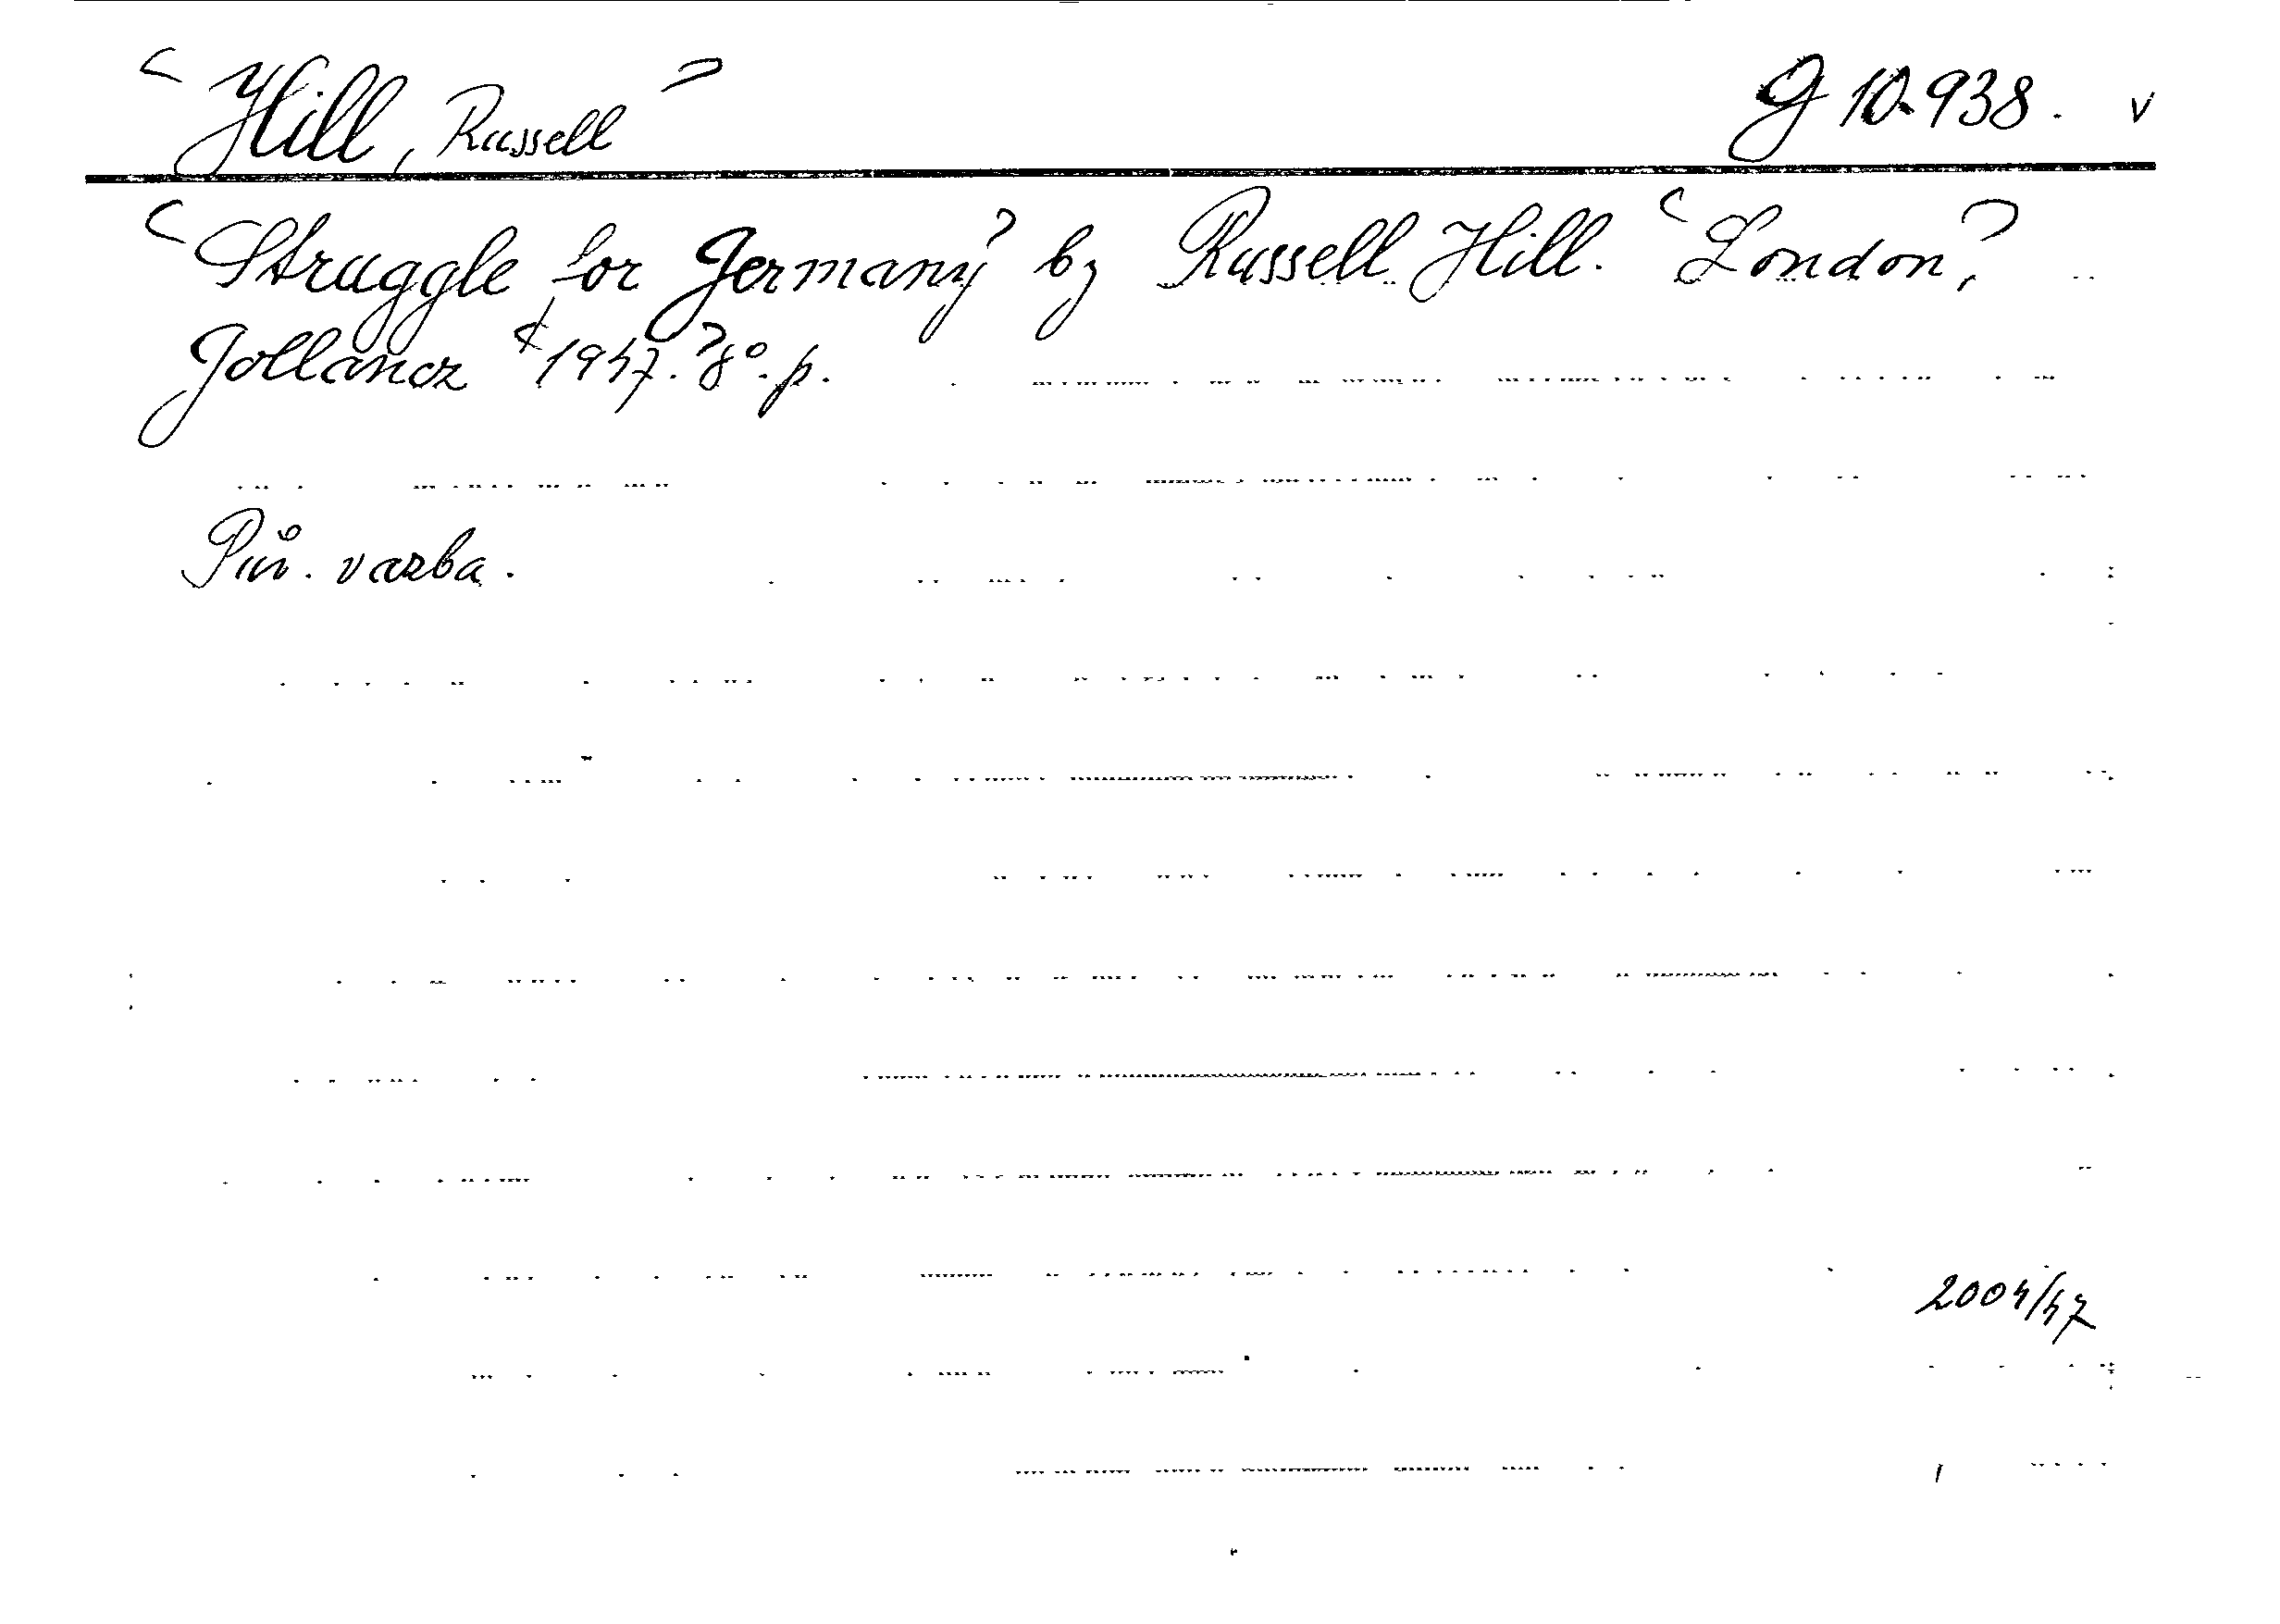 <Hill, Russell> G 10.938. v
<Struggle for Germany> by Russell Hill. <London,>
Gollancz <1947.> 8°. p.
Pův. vazba.
2004/47